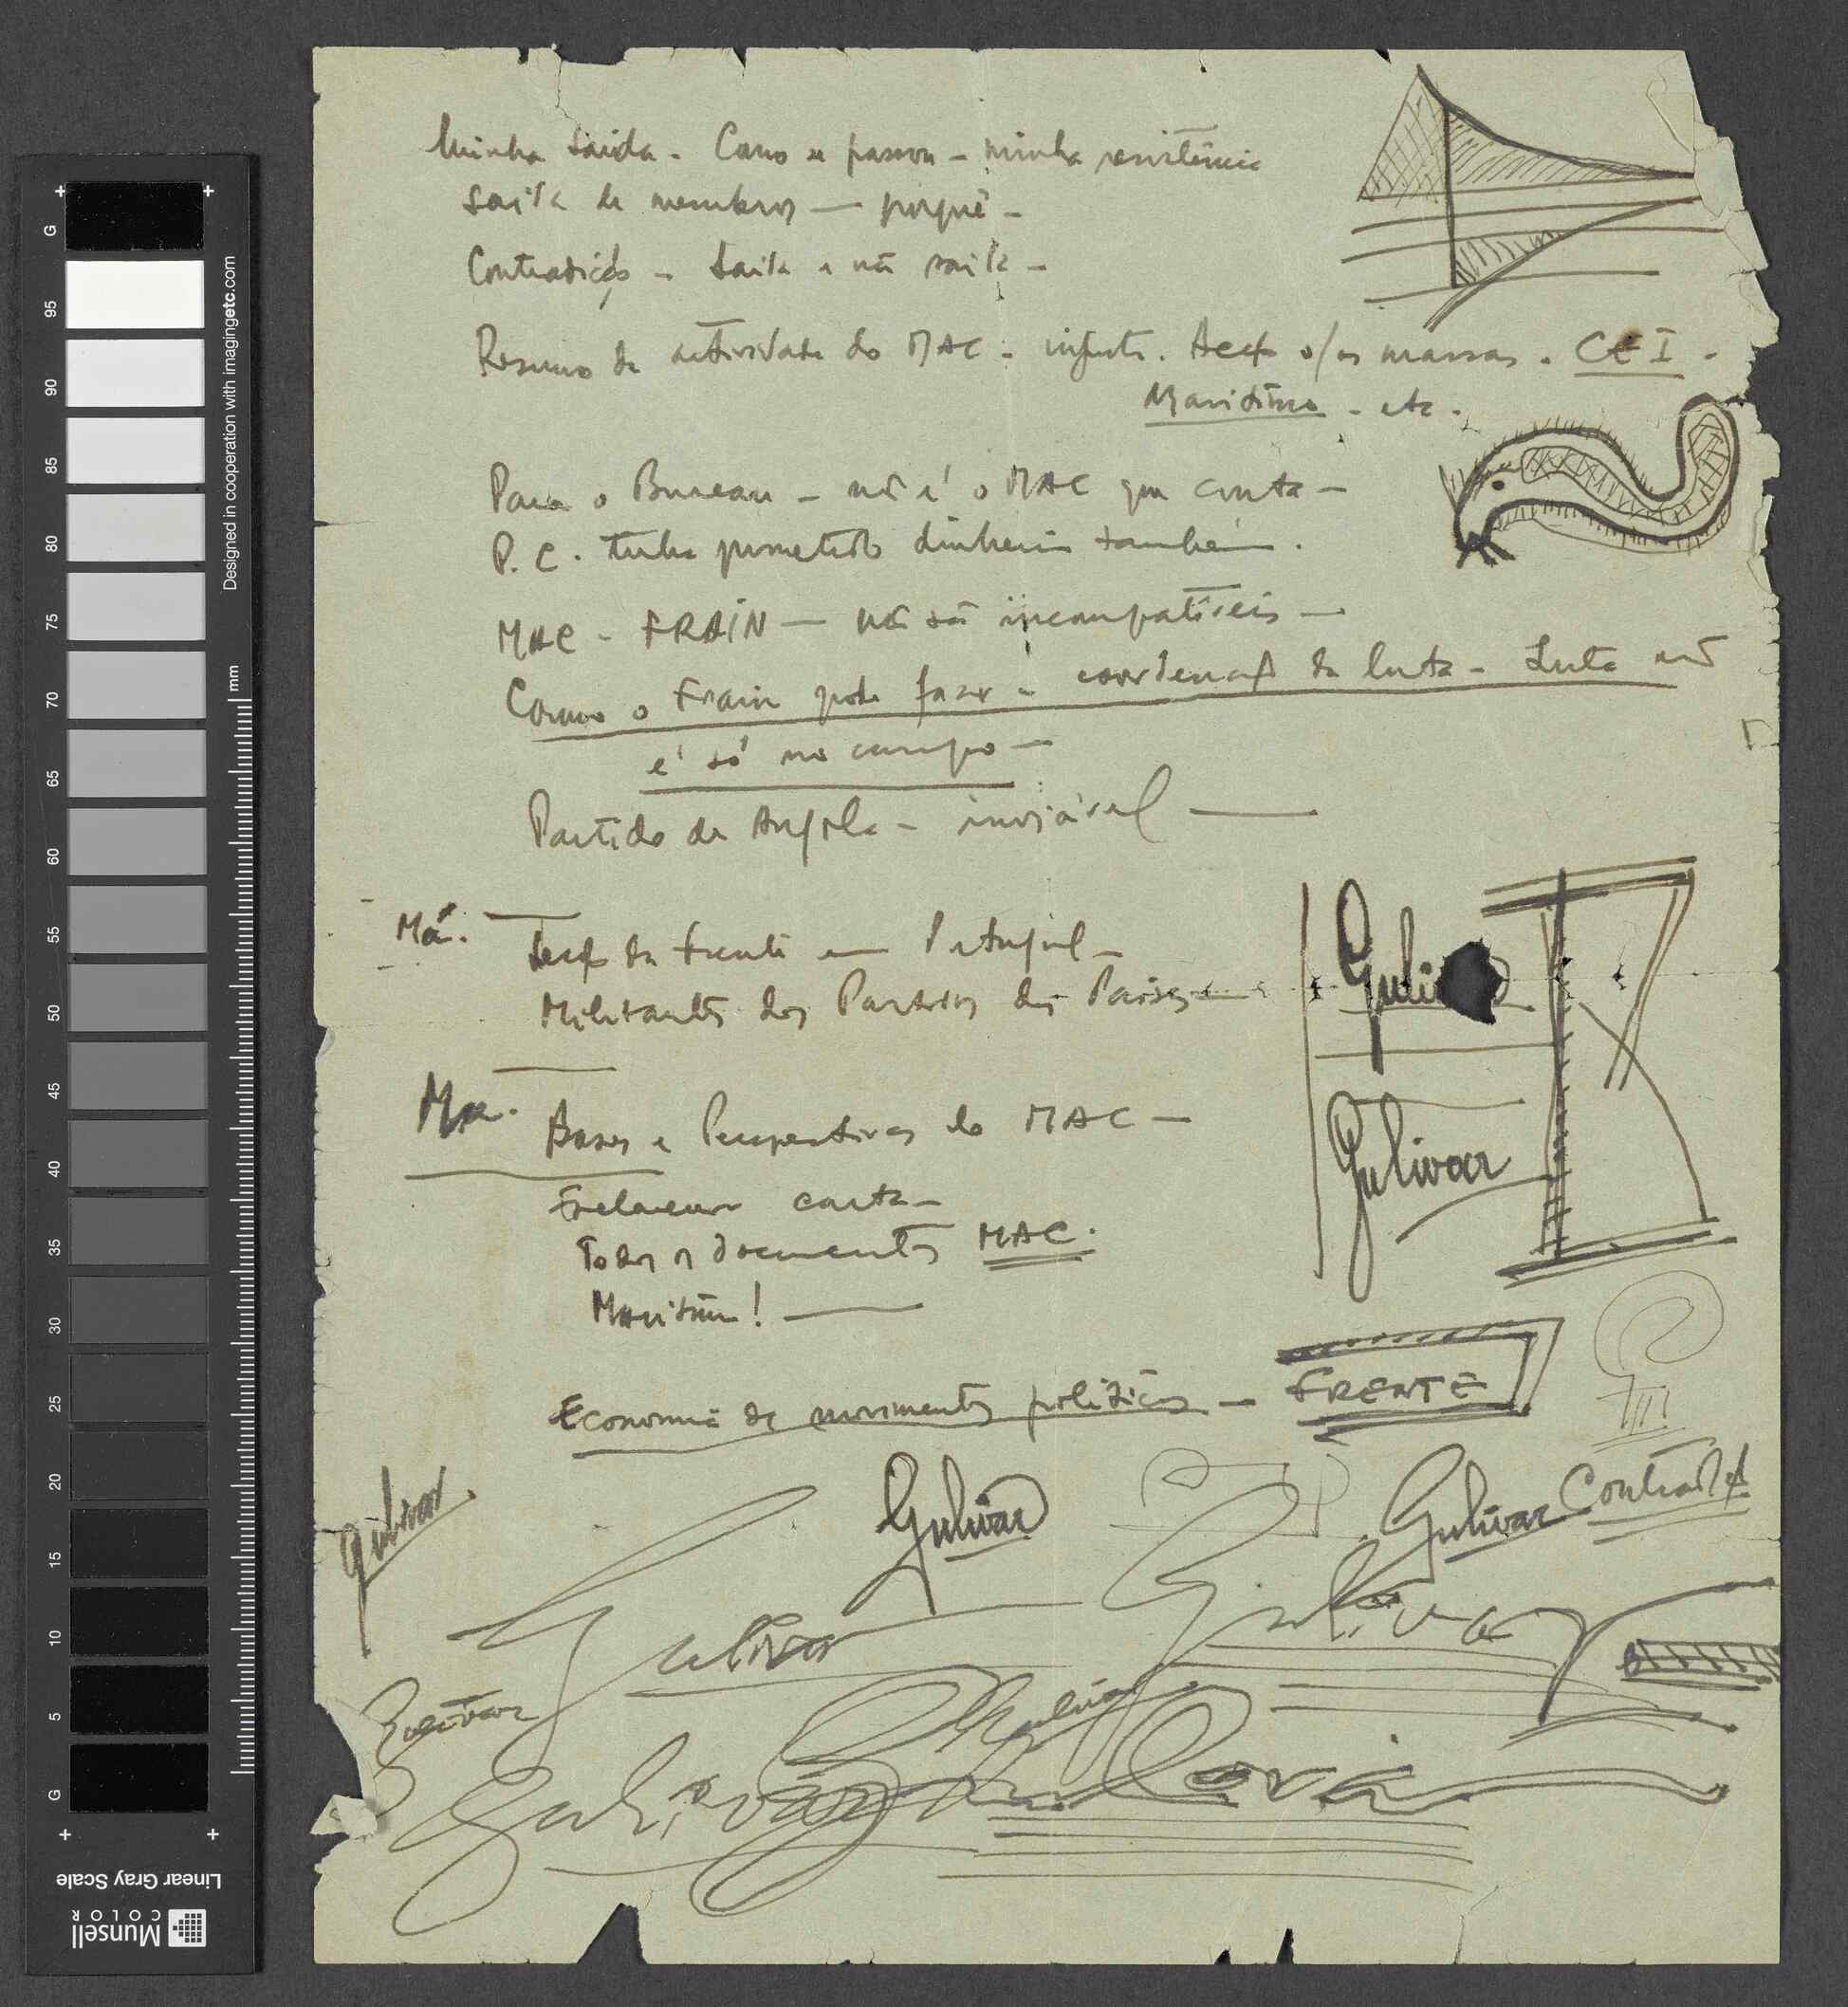 Minha saída - Como se passou - minha resistência
Saída de membros — porquê -
Contradição - Saída e não saída -
Resumo da actividade do MAC - . Acção s/ as massas . CEI -
Marítimo - etc.
Para o Bureau - não é o MAC que conta -
P.C. tinha prometido dinheiro também .
MAC - FRAIN — não são incompatíveis —
Como o Frain pode fazer a coordenação da luta - Luta não
é só no campo —
Partido de Angola - inviável —
Má.
Secção da Frente em Portugal -
Militantes dos Partidos dos Países —
Ma.
Bases e Perspectivas do MAC —
Esclarecer carta -
Todos os documentos MAC.
Marítimo ! —
Economia de movimentos políticos — FRENTE
Gulivar
Gulivar
Gulivar
Gulivar
Gulivar
Gulivar
Gulivar
Gulivar
Gulivar
Gulivar
G
95
90
85
80
75
70
65
60
55
50
45
40
35
30
25
20
15
10
5
G
mm
Designed in cooperation with imagingetc.com
Linear Gray Scale
Munsell
COLOR